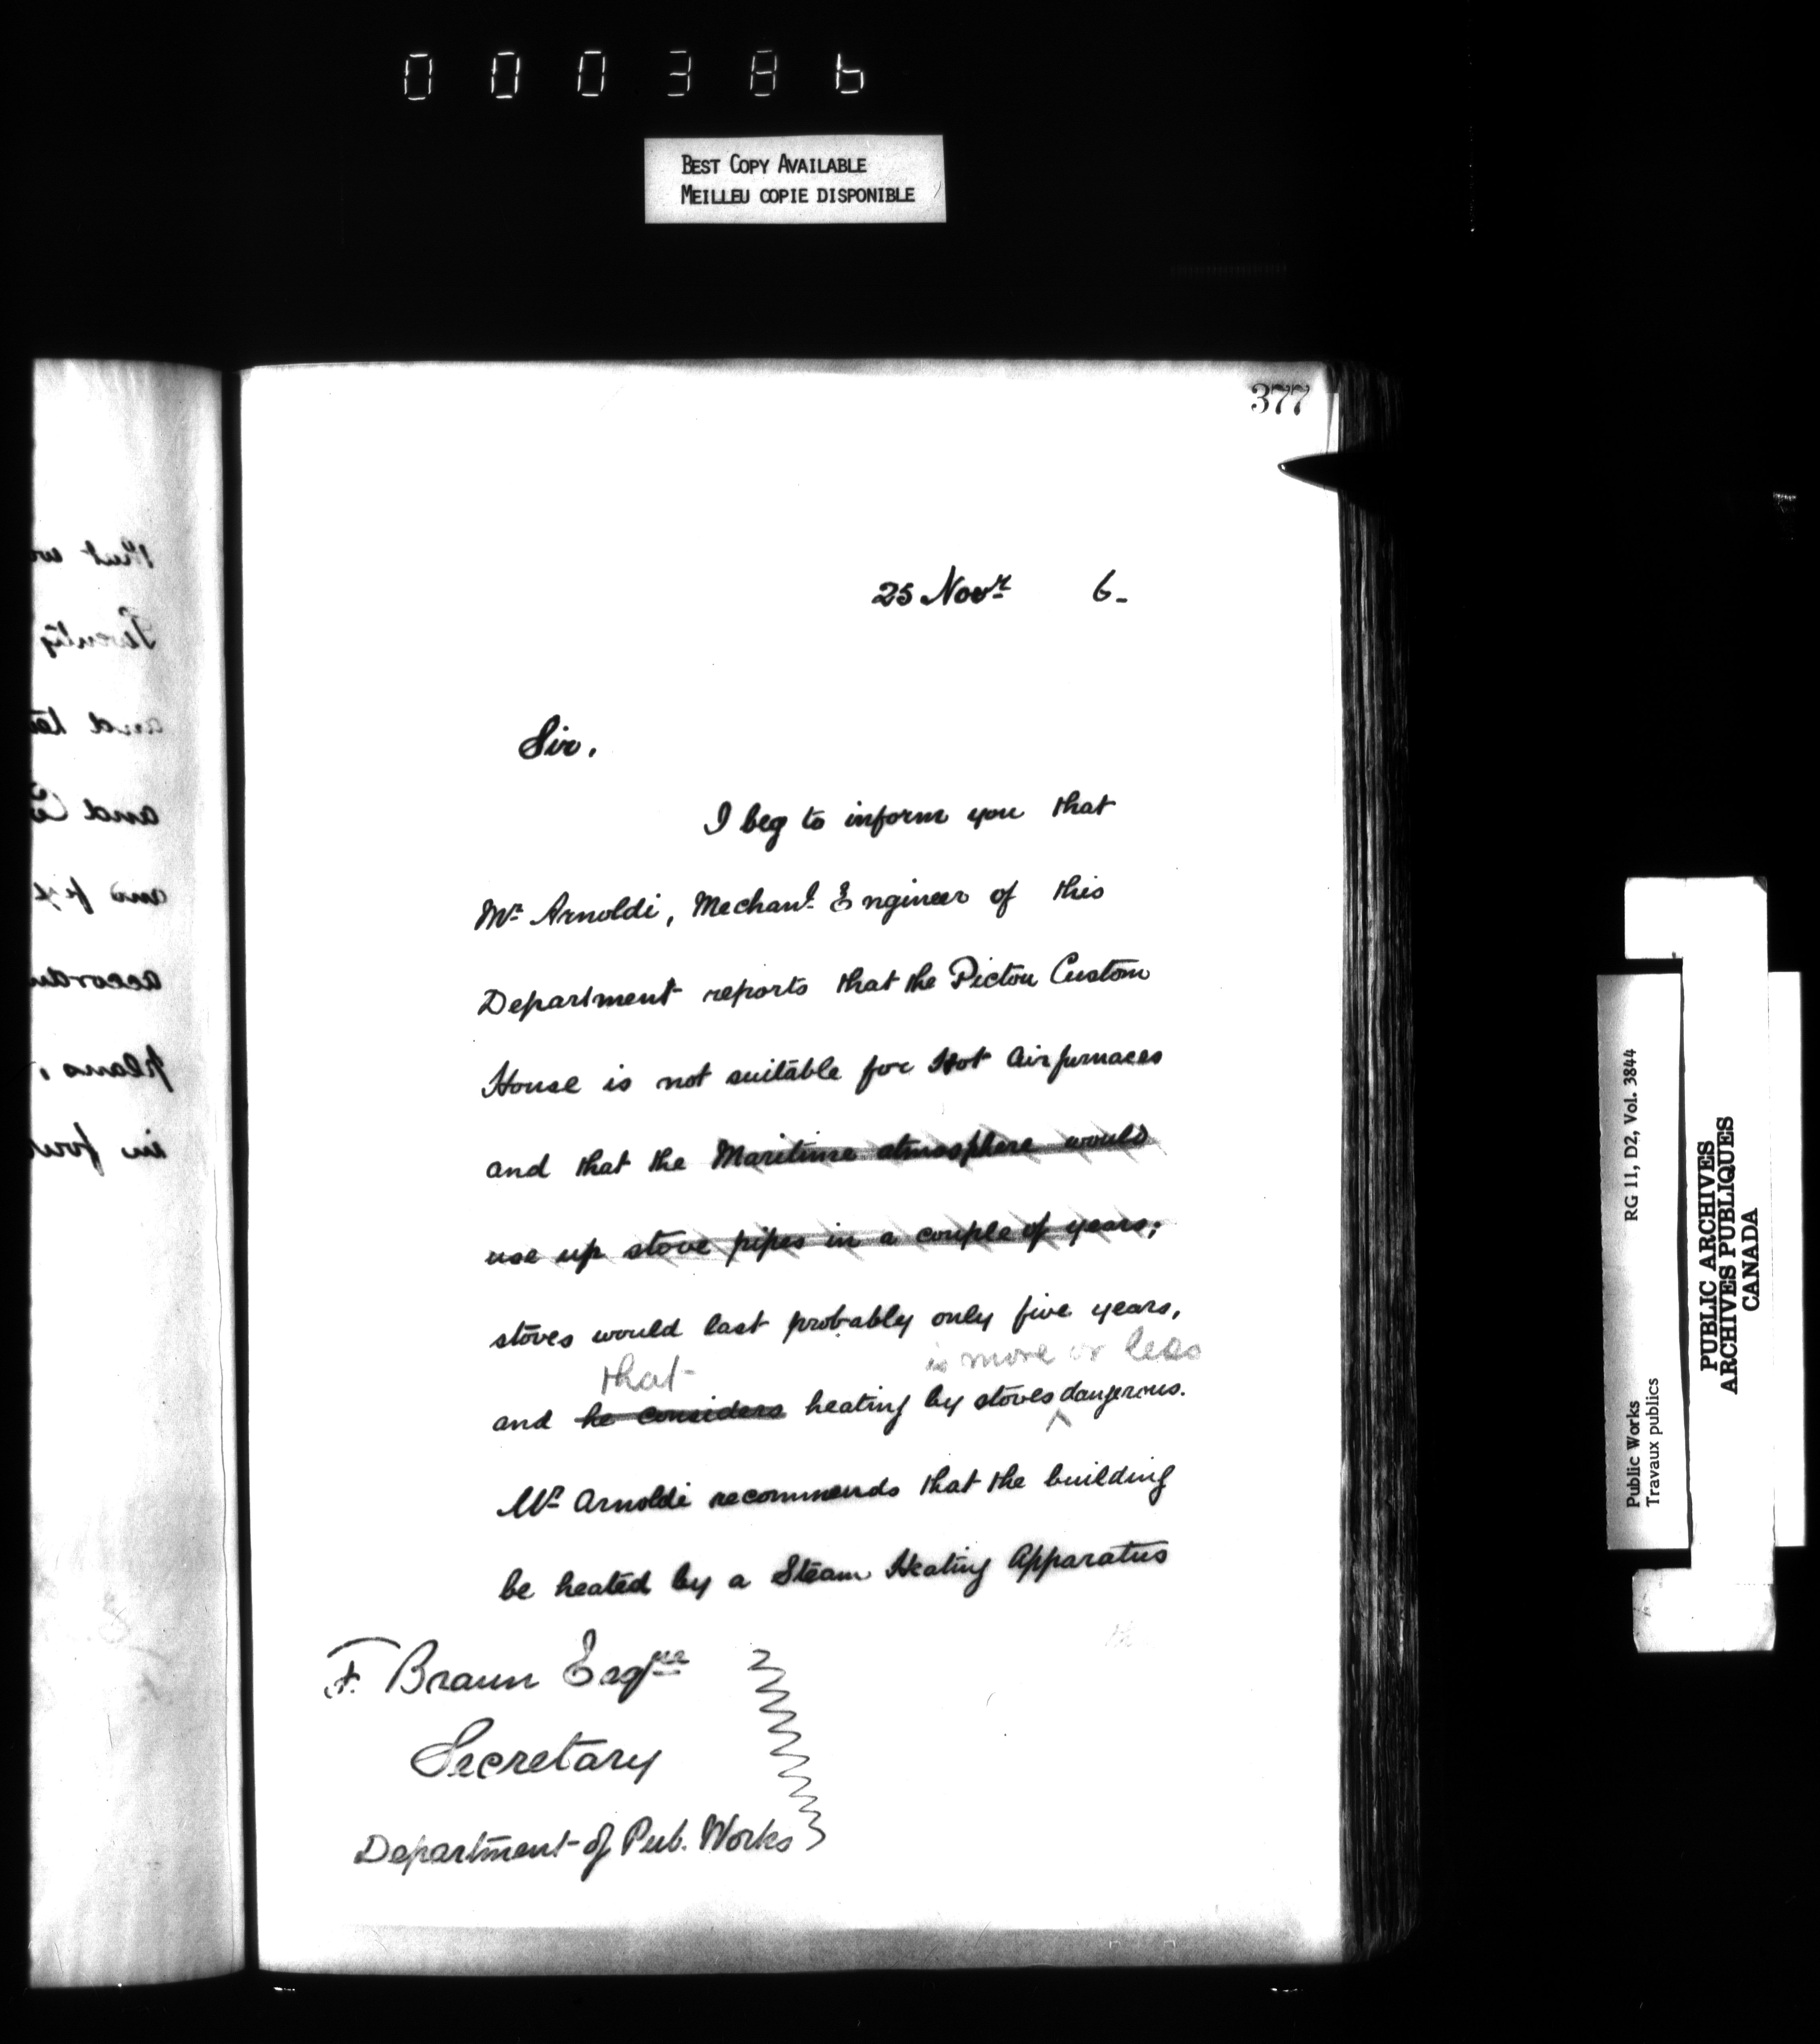 000386
BEST COPY AVAILABLE
MEILLEU COPIE DISPONIBLE
377
25 Novr 6_
Sir,
I beg to inform you that
Mr Arnoldi, Mechanl. Engineer of this
Department reports that the Pictou Custom
House is not suitable for Hot Air furnaces
and that the Maritime atmosphere would
use up stove pipes in a couple of years;
stoves would last probably only five years,
that is more or less
and he considers heating by stoves ^ dangerous.
Mr Arnoldi recommends that the building
be heated by a Steam Heating Apparatus
F. Braun Esqre
Secretary
Department of Pub. Works
RG 11, D2, Vol. 3844
Public Works
Travaux publics
PUBLIC ARCHIVES
ARCHIVES PUBLIQUES
CANADA